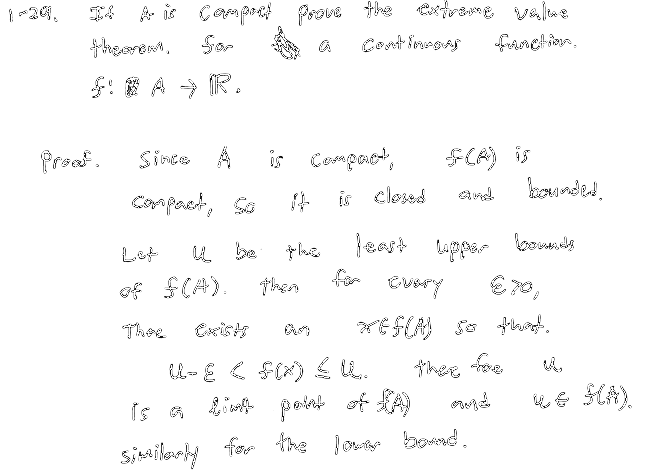 1-29. If A is compact prove the extreme value
theorem. for a continuous function.
f: A → ℝ.
Proof. Since A is compact, f(A) is
compact, so it is closed and bounded.
Let u be the least upper bounds
of f(A). then for every ε>0,
There exists an x∈f(A) so that.
u-ε < f(x) ≤ u. therefoe u
is a limit point of f(A) and u ∈ f(A).
similarly for the lower bound.